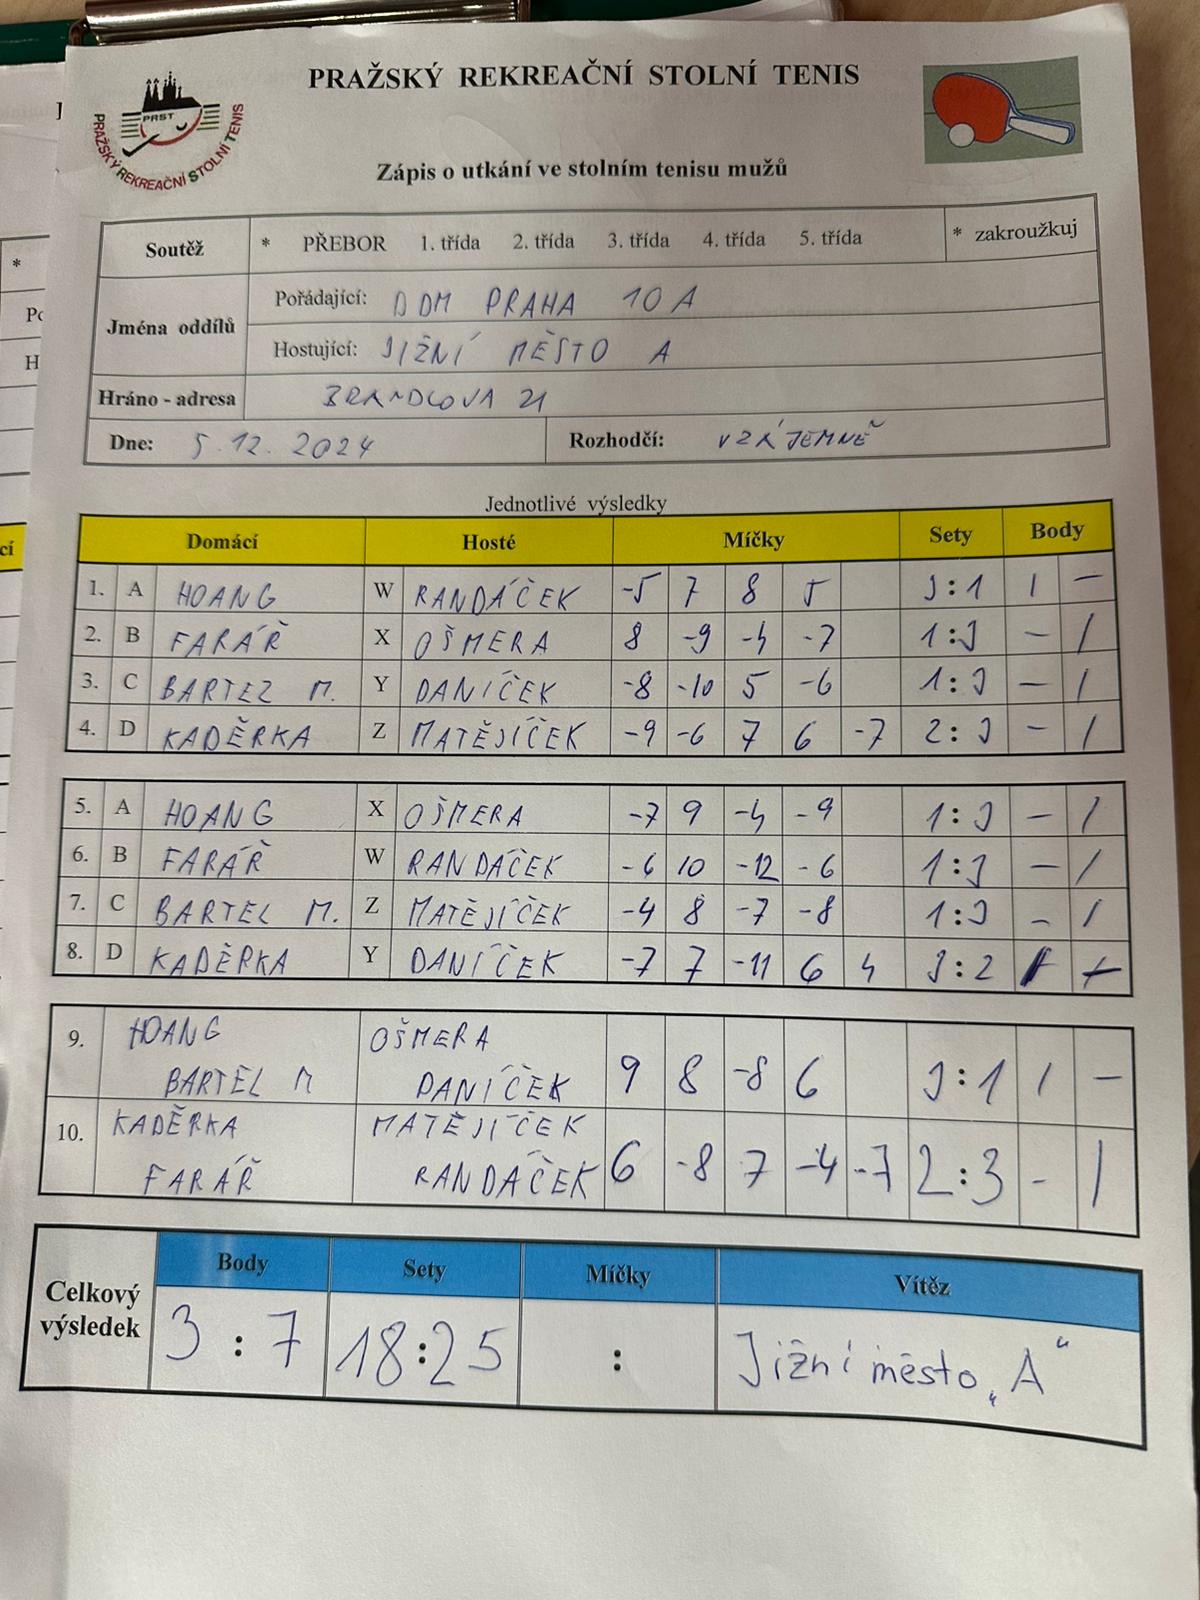 PRAŽSKÝ REKREAČNÍ STOLNÍ TENIS
PRST
PRAŽSKÝ REKREAČNÍ STOLNÍ TENIS
Zápis o utkání ve stolním tenisu mužů
Soutěž * PŘEBOR 1. třída 2. třída 3. třída 4. třída 5. třída * zakroužkuj
Jména oddílů
Pořádající: DDM PRAHA 10 A
Hostující: JIŽNÍ MĚSTO A
Hráno - adresa BRANDLOVA 21
Dne: 5.12. 2024 Rozhodčí: VZÁJEMNĚ
Jednotlivé výsledky
Domácí Hosté Míčky Sety Body
1. A HOANG W RANDÁČEK -5 7 8 5 3:1 1 -
2. B FARÁŘ X OŠMERA 8 -9 -4 -7 1:3 - 1
3. C BARTEL M. Y DANÍČEK -8 -10 5 -6 1:3 - 1
4. D KADĚRKA Z MATĚJÍČEK -9 -6 7 6 -7 2:3 - 1
5. A HOANG X OŠMERA -7 9 -4 -9 1:3 - 1
6. B FARÁŘ W RANDÁČEK -6 10 -12 -6 1:3 - 1
7. C BARTEL M. Z MATĚJÍČEK -4 8 -7 -8 1:3 - 1
8. D KADĚRKA Y DANÍČEK -7 7 -11 6 4 3:2 1 -
9. HOANG OŠMERA
BARTEL M DANÍČEK 9 8 -8 6 3:1 1 -
10. KADĚRKA MATĚJÍČEK
FARÁŘ RANDÁČEK 6 -8 7 -4 -7 2:3 - 1
Celkový výsledek
Body Sety Míčky Vítěz
3 : 7 18:25 : Jižní město „A“